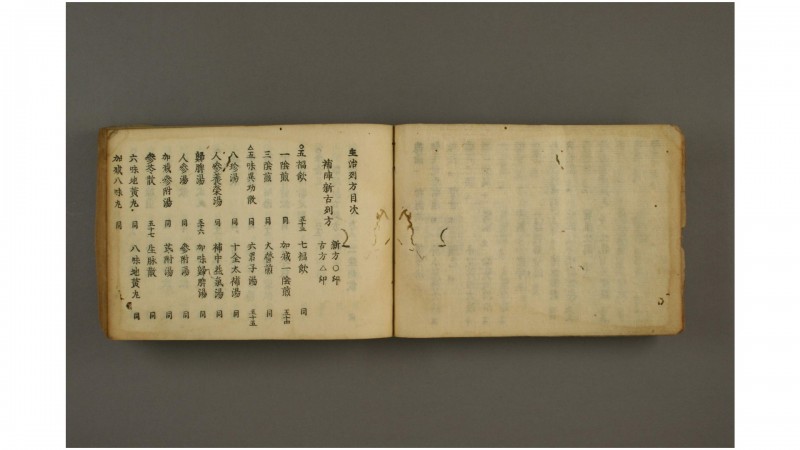 主治列方目次
補陣新古列方 新方○印
古方△印
○五福飲 五十五 七福飲 同
一陰煎 同 加減一陰煎 五十四
三陰煎 同 大營煎 同
△五味異功散 同 六君子湯 五十五
八珍湯 同 十全大補湯 同
人參養榮湯 同 補中益氣湯 同
歸脾湯 五十六 加味歸脾湯 同
人參湯 同 參附湯 同
加減參附湯 同 芪附湯 同
參冬散 五十七 生脉散 同
六味地黃丸 同 八味地黃丸 同
加減八味丸 同